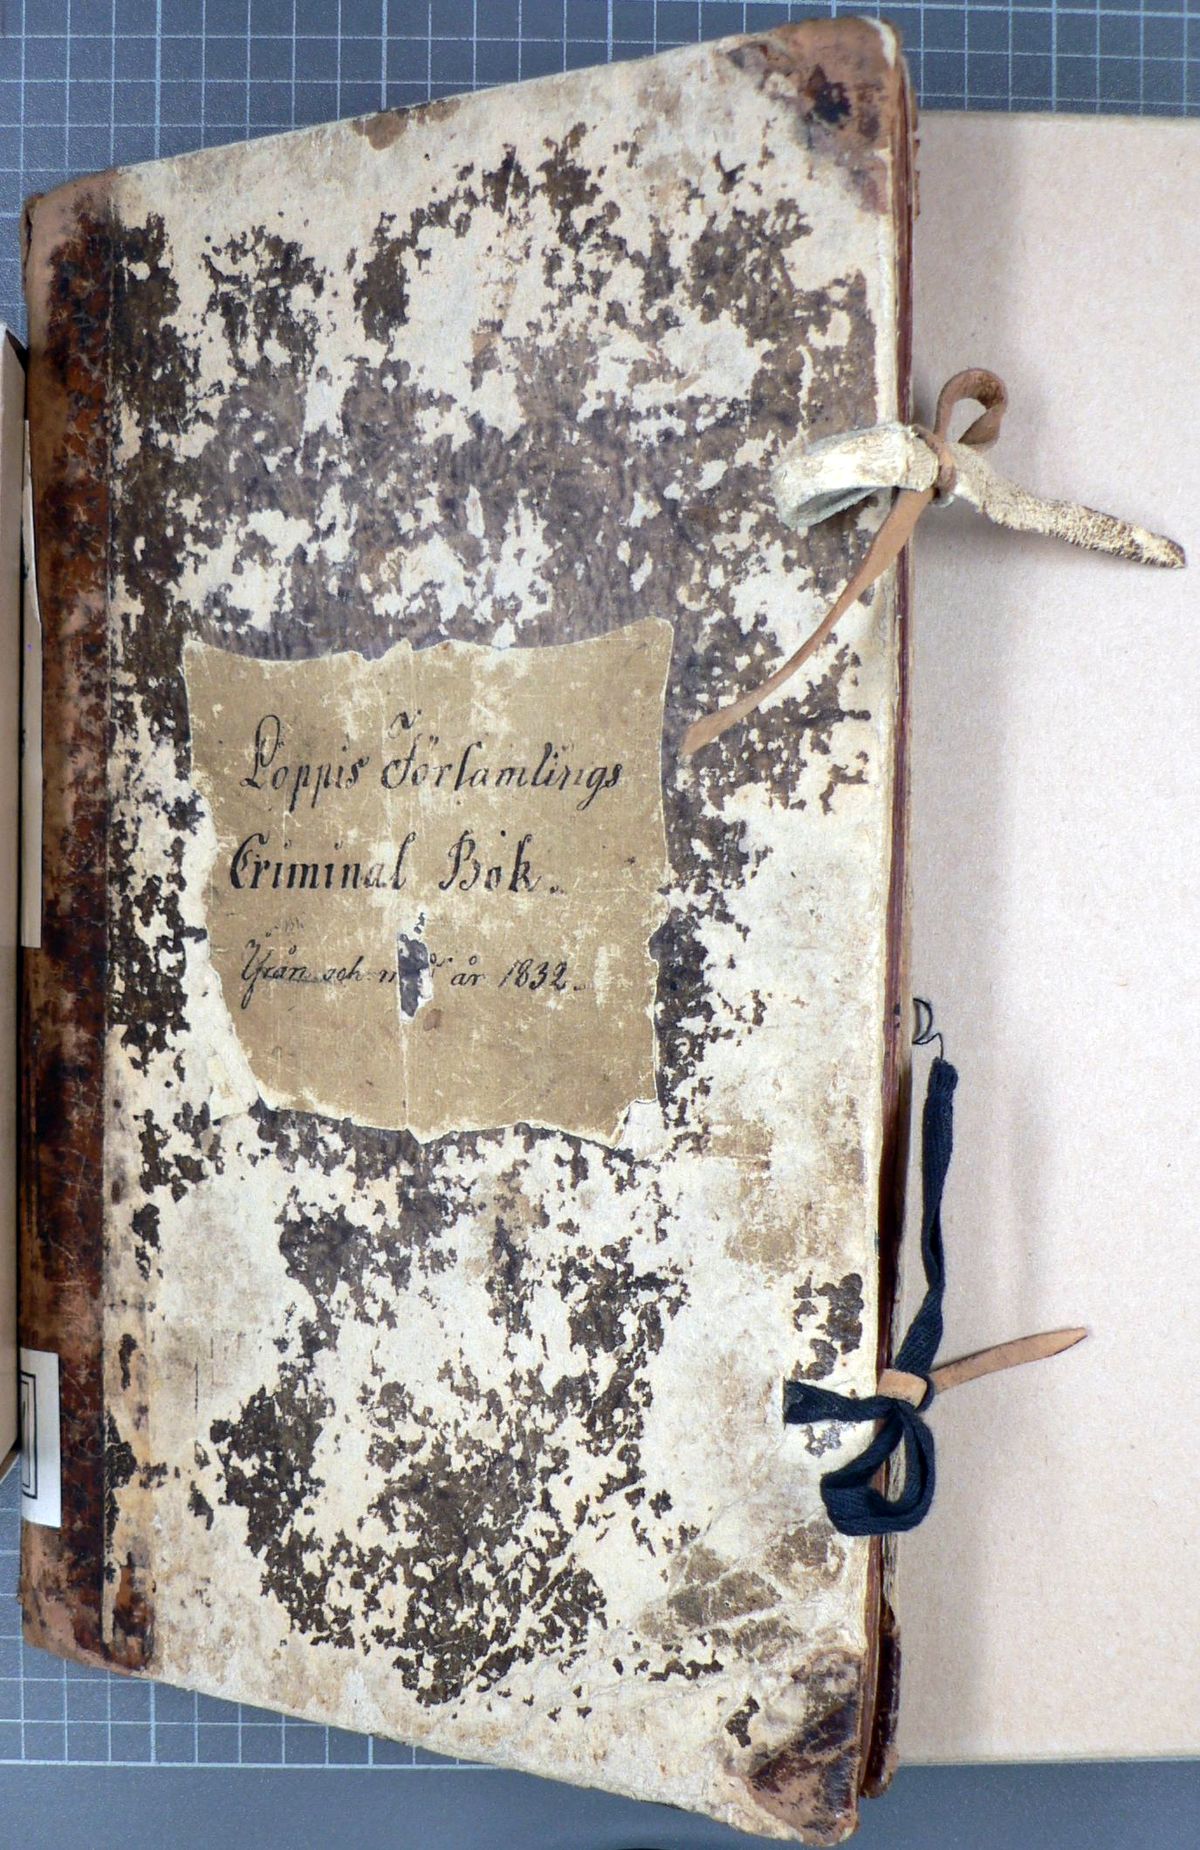 Loppis Församlings
Criminal Bok.
Från och år 1832.